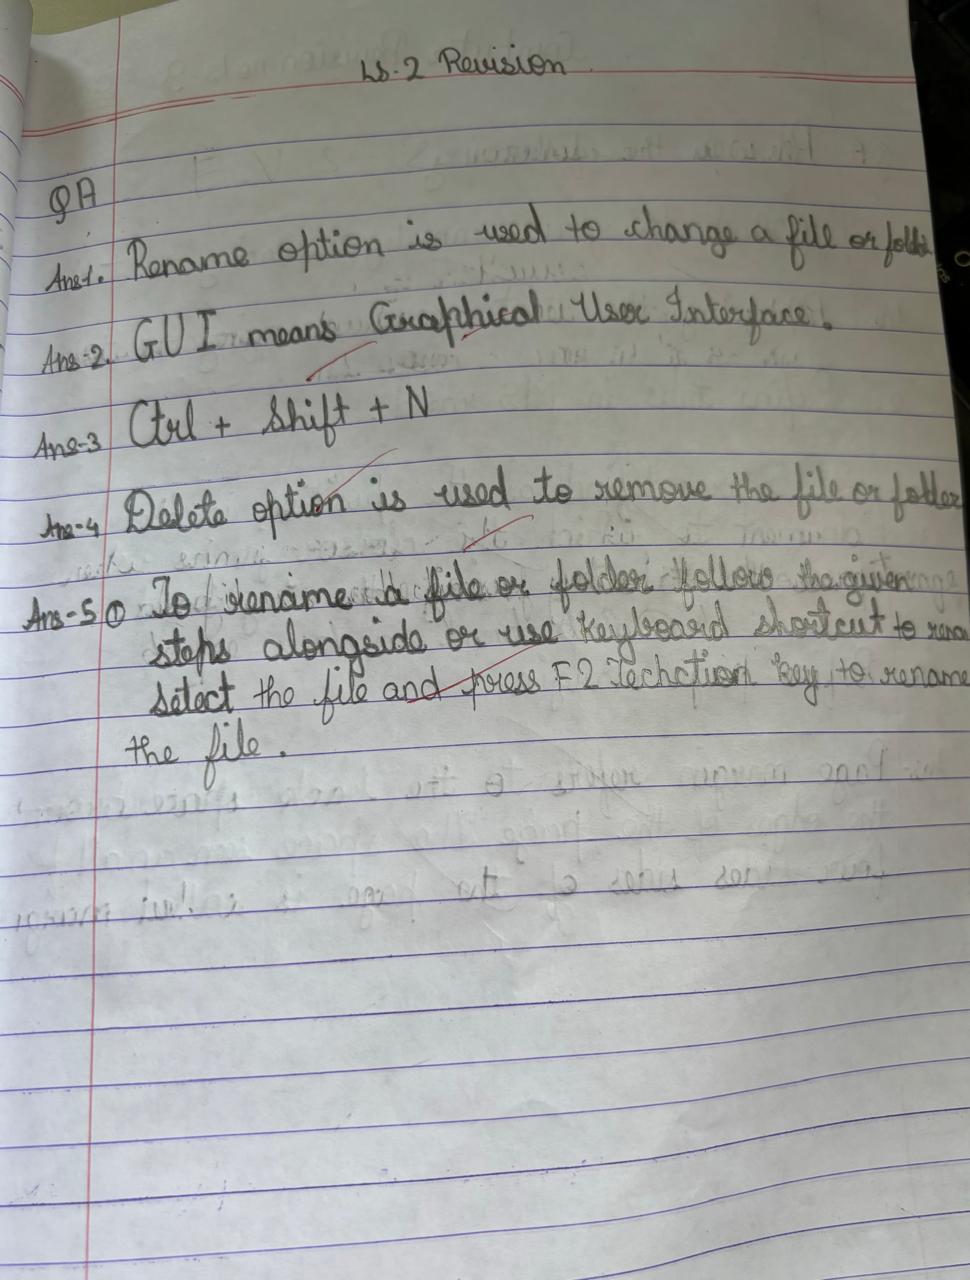 Ls.2 Revision
QA
Ans1. Rename option is used to change a file or folder
Ans-2. GUI means Graphical User Interface.
Ans-3 Ctrl + Shift + N
Ans-4 Delete option is used to remove the file or folder
Ans-5 ① To rename a file or folder follow the given
steps alongside or use keyboard shortcut to rena
select the file and press F2 key to rename
the file.